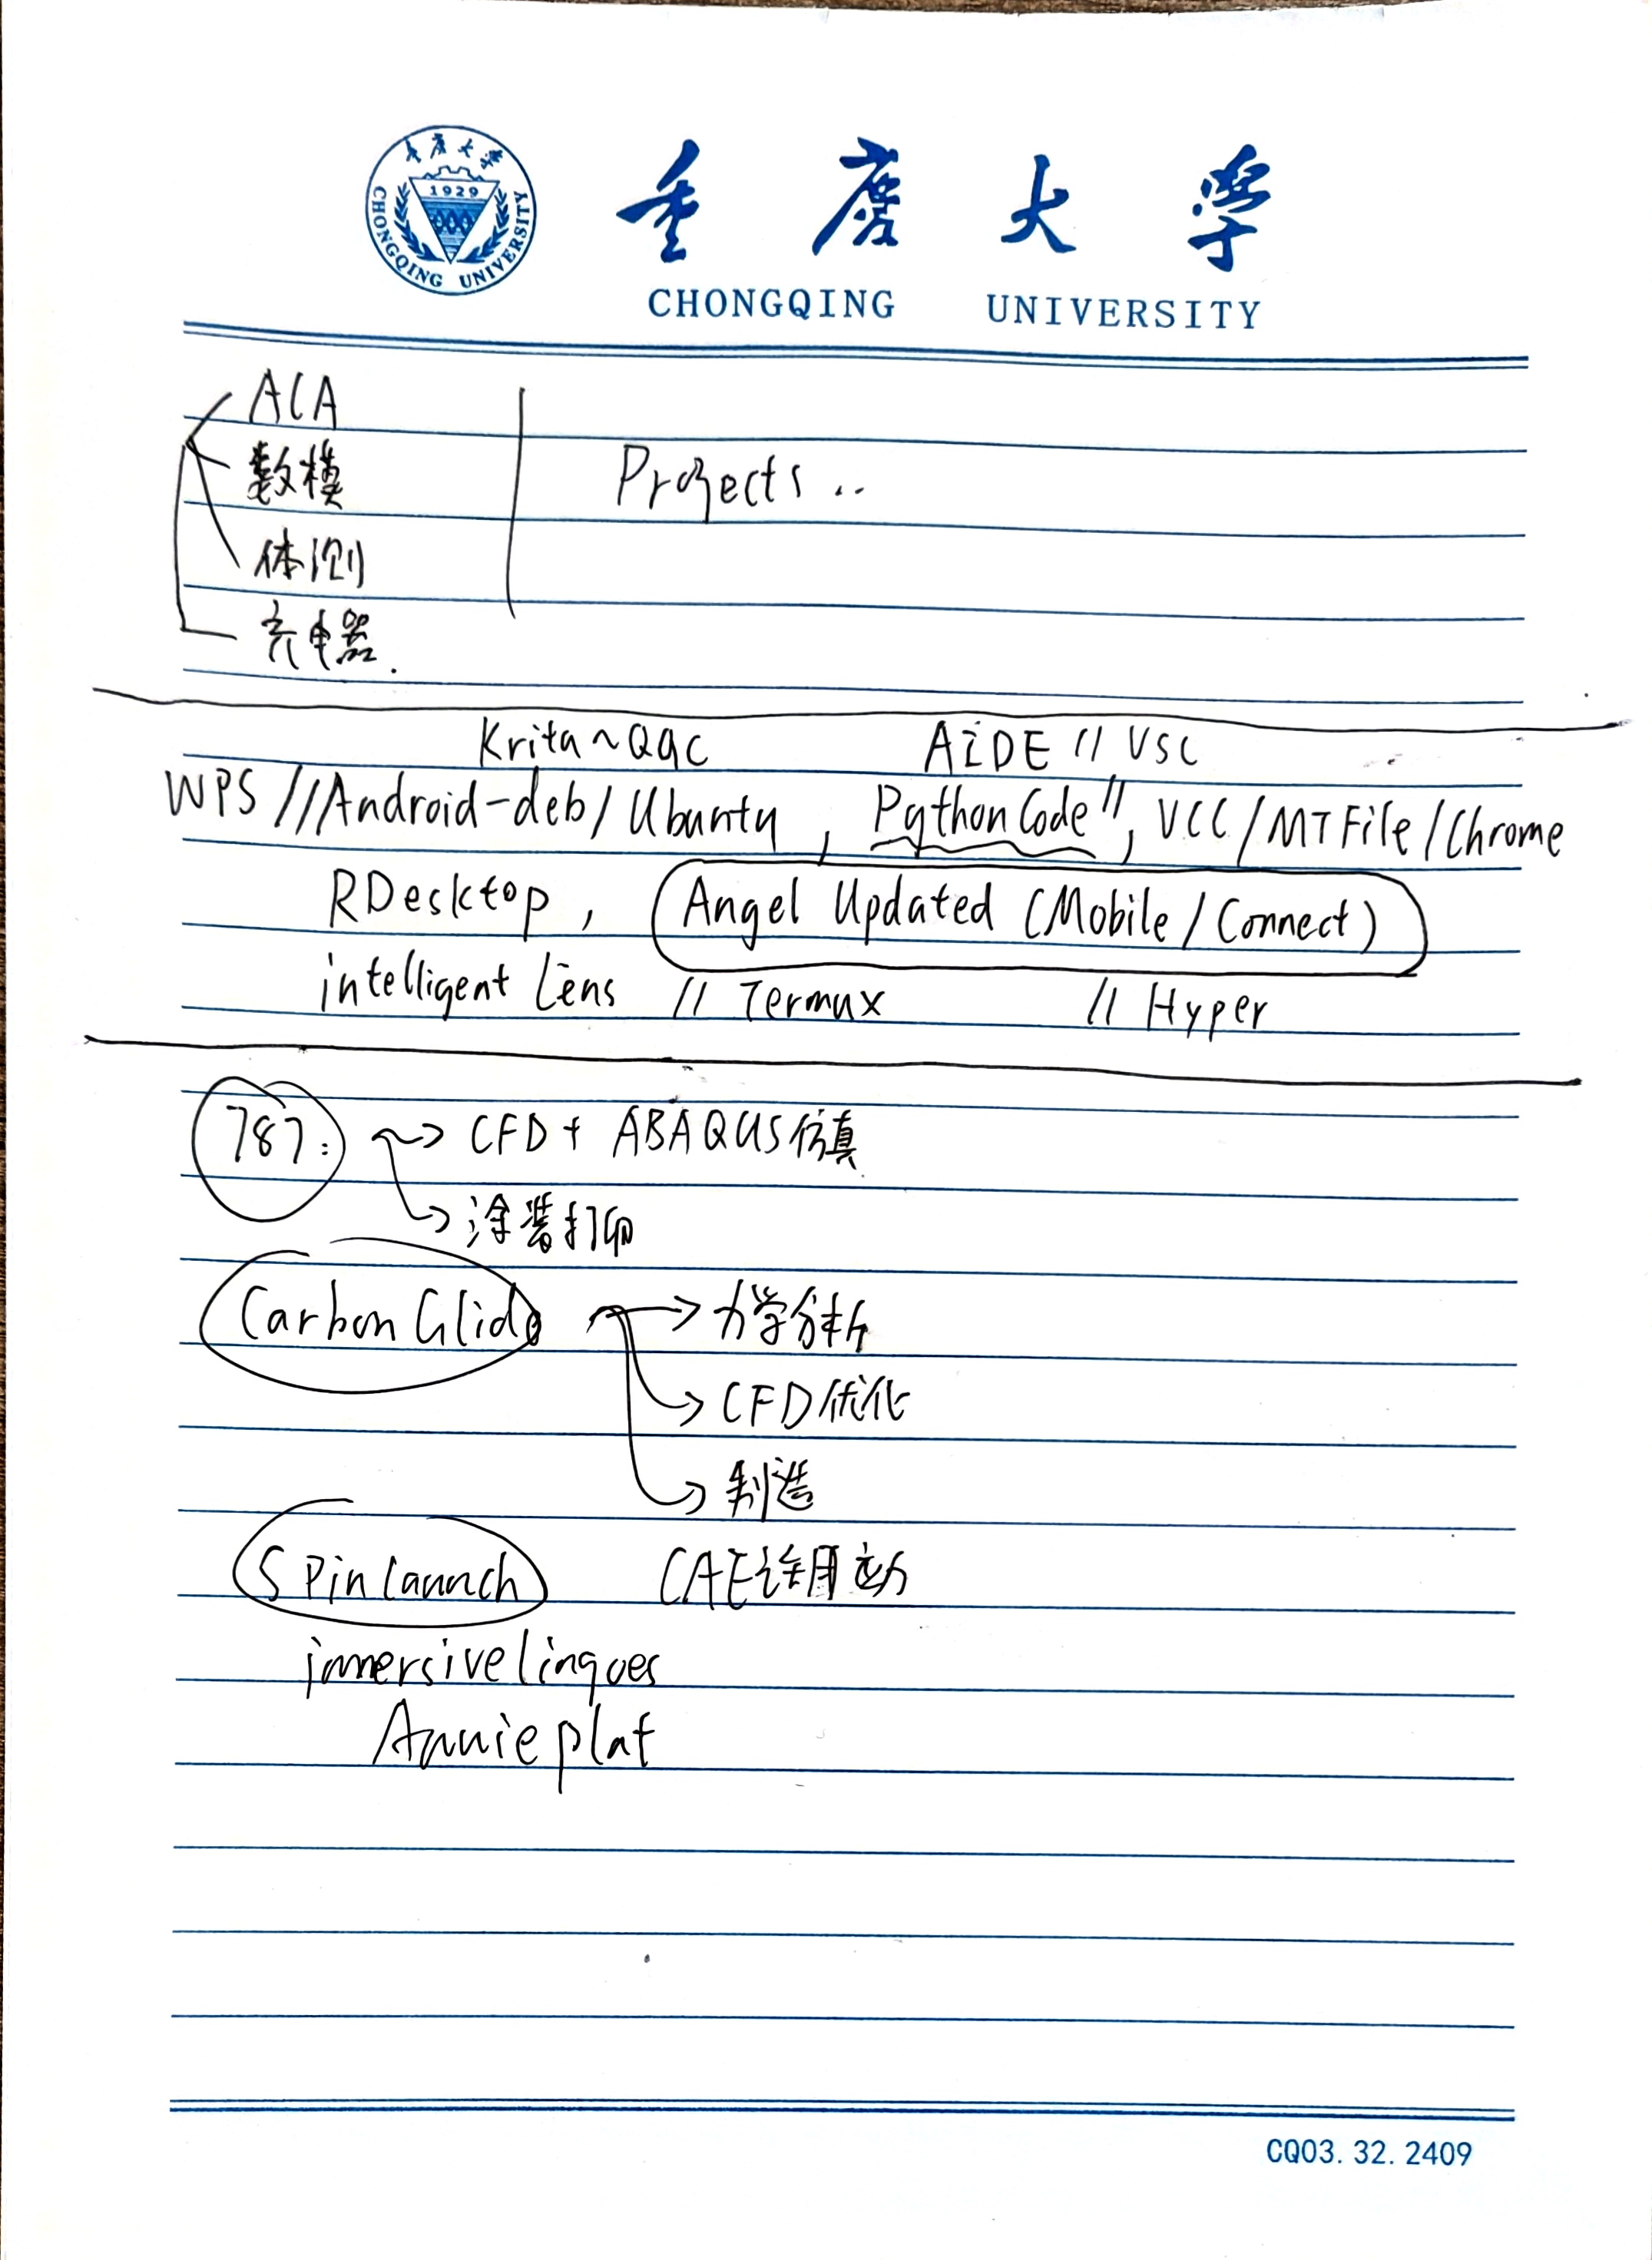 重庆大学
1929
CHONGQING UNIVERSITY
重庆大学
CHONGQING UNIVERSITY
ACA
数模
Projects..
体测
充电器.
Krita~QQC AiDE // VSC
WPS///Android-deb/Ubuntu, PythonCode//, VCC/MTFile/Chrome
RDesktop, Angel Updated (Mobile/Connect)
intelligent Lens // Termux // Hyper
787: CFD + ABAQUS仿真
涂装打印
Carbon Glide 力学分析
CFD优化
制造
SPinLaunch CAE
immersive lingoes
Annie plat
CQ03.32.2409